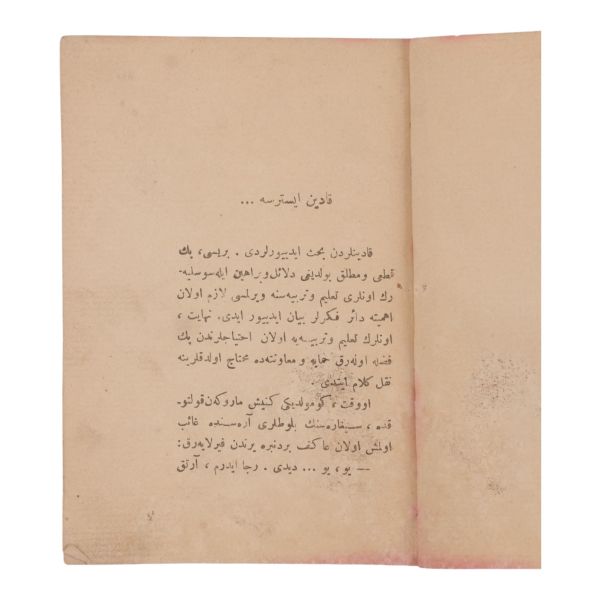 قادين ايسترسه ...
قادينلردن بحث ايدييورلردى . بريسى، پك
قطعى ومطلق بولديغى دلائل وبراهين ايله سوسليه-
رك اونلرى تعليم وتربيه سنه ويرلمسى لازم اولان
اهميته دائر فكرلر بيان ايدييور ايدى. نهايت ،
اونلرك تعليم وتربيه يه اولان احتياجلرندن پك
فضله اوله رق حمايه و معاونته ده محتاج اولدقلرينه
نقل كلام ايتدى .
اووقت ، كومولديكى كنيش ماروكه ن قولتو-
قده ، سيغاره سنك بلوطلرى آره سنده غائب
اولمش اولان عاكف بردنبره يرندن فيرلايه رق:
— يو ، يو ... ديدى . رجا ايدرم ، آرتق